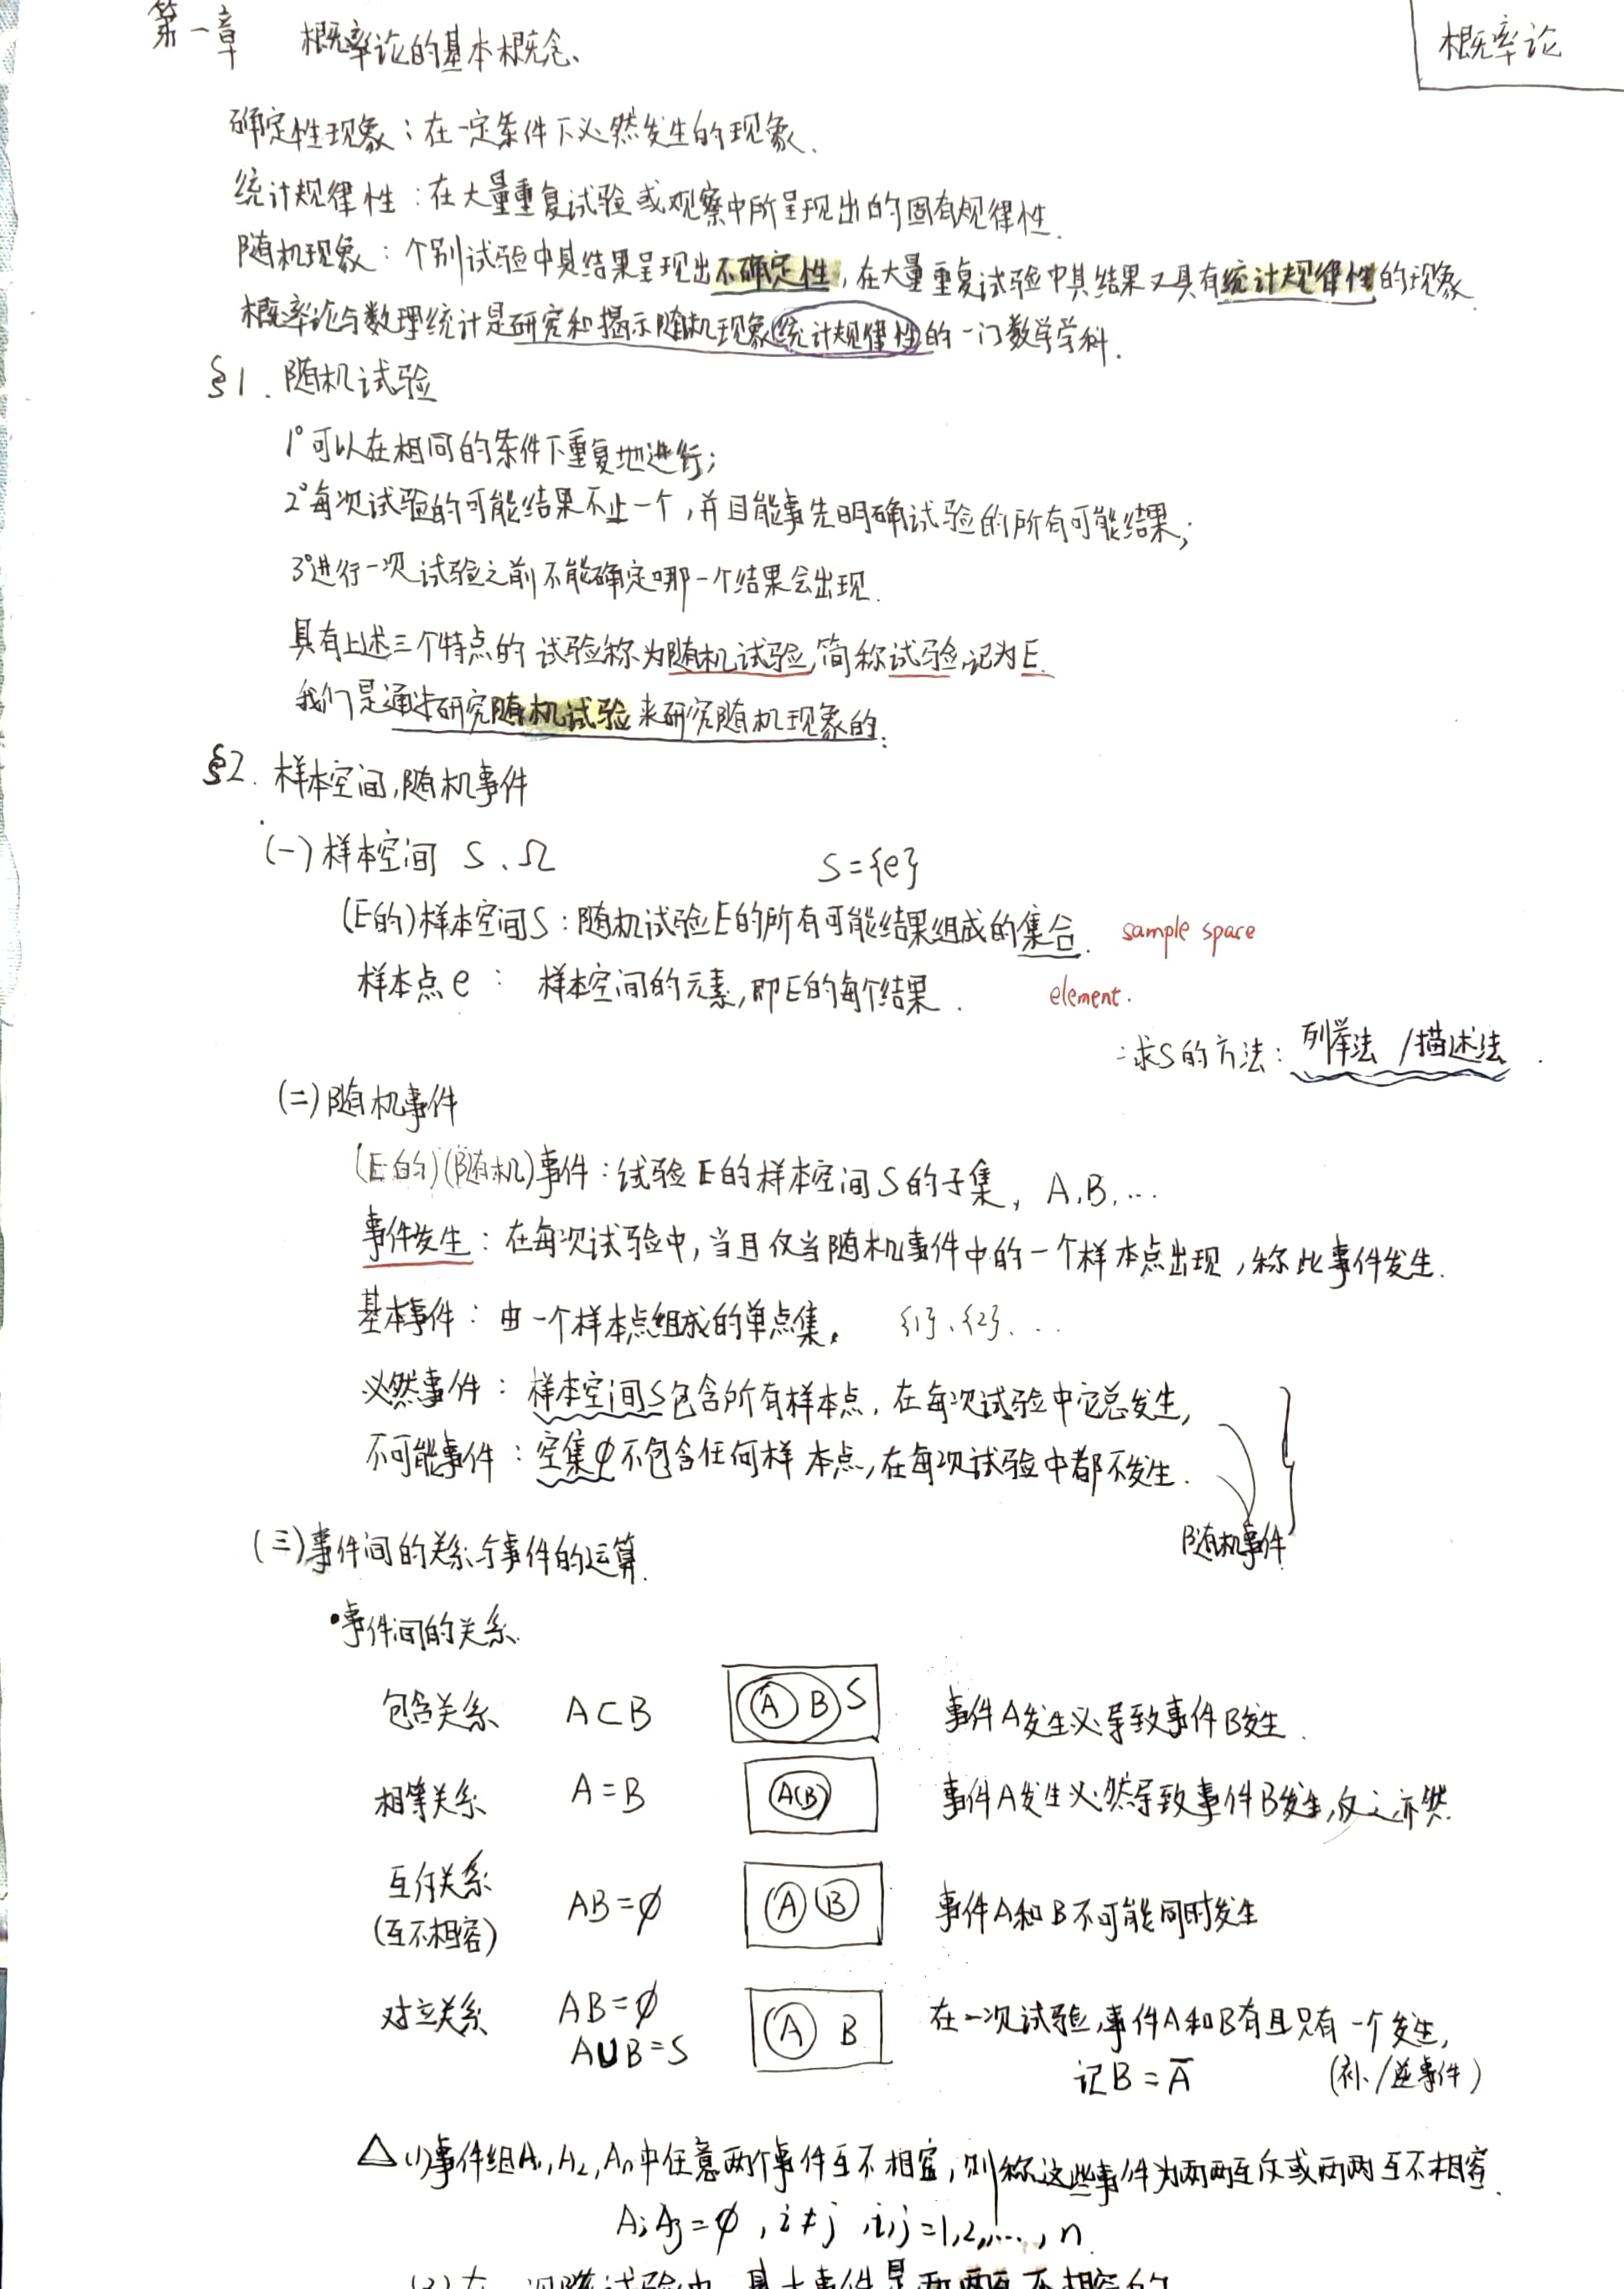 第一章 概率论的基本概念、
概率论
确定性现象：在一定条件下必然发生的现象.
统计规律性：在大量重复试验或观察中所呈现出的固有规律性.
随机现象：个别试验中其结果呈现出不确定性，在大量重复试验中其结果又具有统计规律性的现象.
概率论与数理统计是研究和揭示随机现象统计规律性的一门数学学科.
§1. 随机试验
1°可以在相同的条件下重复地进行；
2°每次试验的可能结果不止一个，并且能事先明确试验的所有可能结果；
3°进行一次试验之前不能确定哪一个结果会出现.
具有上述三个特点的试验称为随机试验,简称试验,记为E.
我们是通过研究随机试验来研究随机现象的.
§2. 样本空间,随机事件
(一)样本空间 S、Ω S={e}
(E的)样本空间S：随机试验E的所有可能结果组成的集合. sample space
样本点e： 样本空间的元素,即E的每个结果. element.
求S的方法：列举法/描述法.
(二)随机事件
(E的)(随机)事件：试验E的样本空间S的子集, A,B,…
事件发生：在每次试验中,当且仅当随机事件中的一个样本点出现,称此事件发生.
基本事件：由一个样本点组成的单点集. {1}、{2}、…
必然事件：样本空间S包含所有样本点,在每次试验中它总发生,
不可能事件：空集∅不包含任何样本点,在每次试验中都不发生.
随机事件
(三)事件间的关系与事件的运算.
•事件间的关系.
包含关系 A⊂B A B S 事件A发生必导致事件B发生.
相等关系 A=B A(B) 事件A发生必然导致事件B发生,反之亦然.
互斥关系
(互不相容) AB=∅ A B 事件A和B不可能同时发生
对立关系 AB=∅ A B 在一次试验,事件A和B有且只有一个发生,
A∪B=S 记B=A̅ (补/逆事件)
△(1)事件组A₁,A₂,Aₙ中任意两个事件互不相容,则称这些事件为两两互斥或两两互不相容.
AᵢAⱼ=∅, i≠j, i,j=1,2,…,n